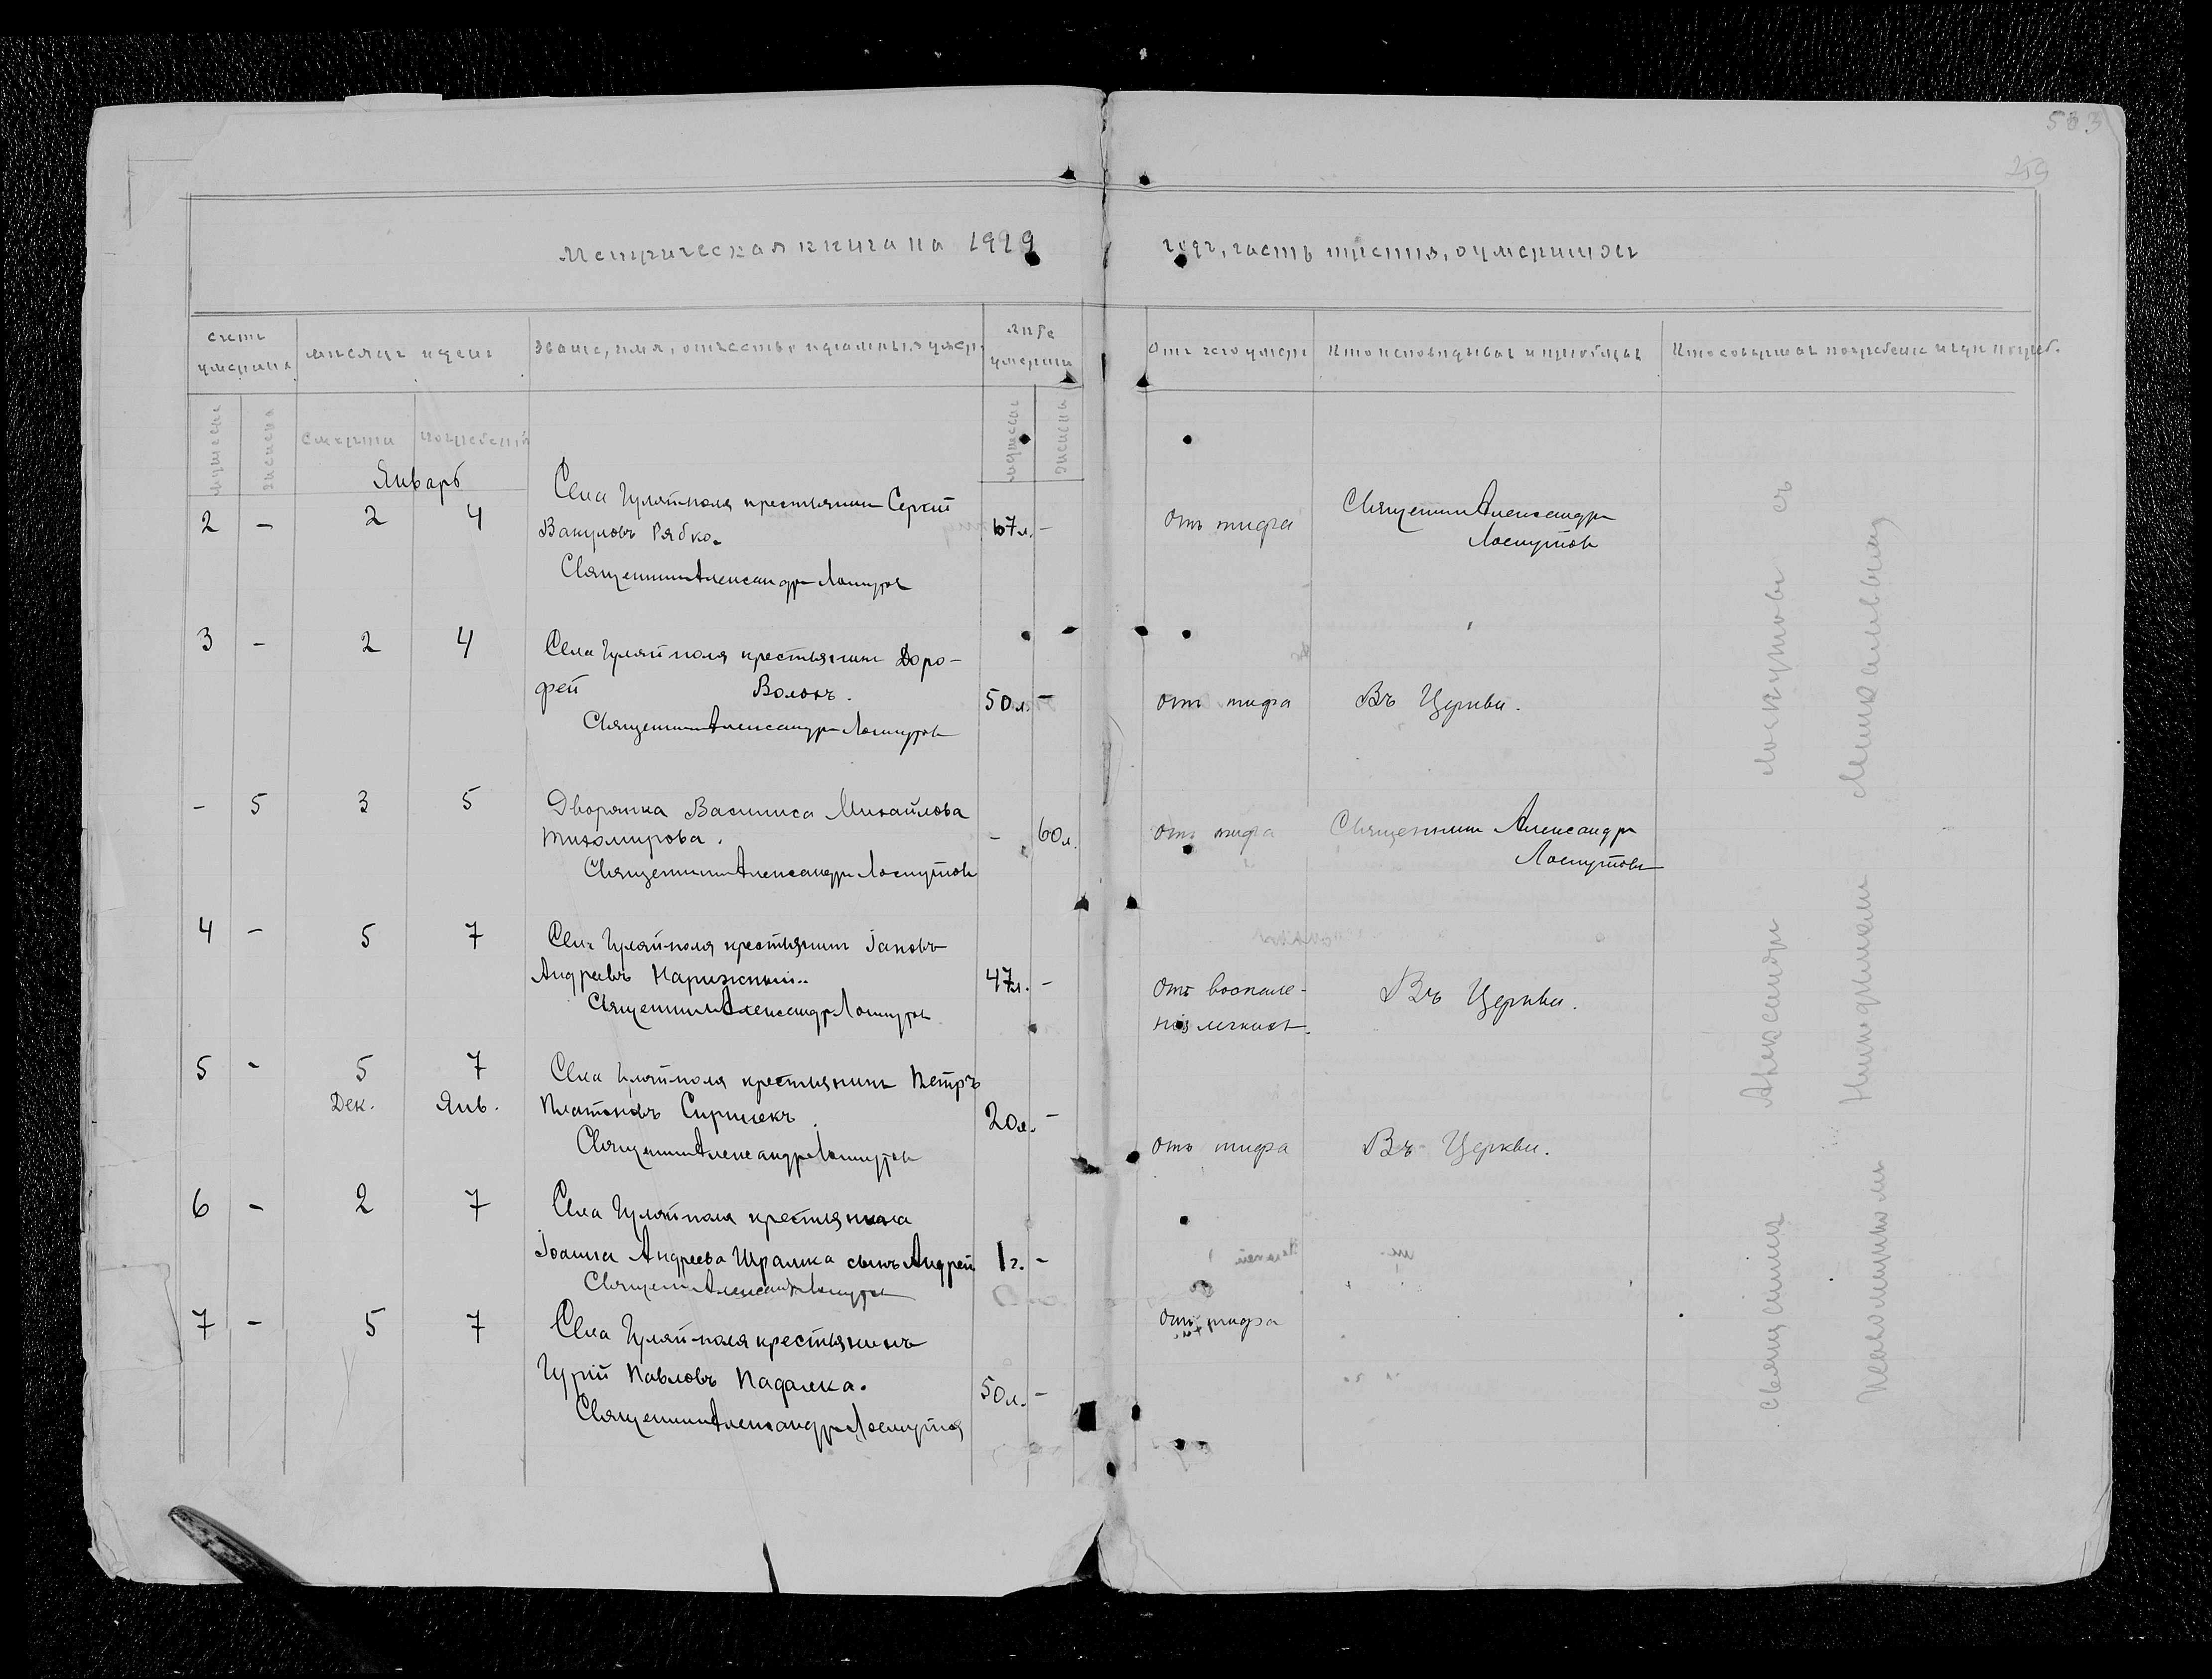 533
259
Метрическая книга на 1919
годъ, часть третья, о умершихъ
Счетъ умершихъ
мѣсяцъ и день
Званіе, имя, отчество и фамилія умер.
Лѣта умершаго
Отъ чего умеръ
Кто исповѣдывалъ и пріобщалъ
Кто совершалъ погребеніе и гдѣ погреб.
мужеска
женска
смерти
погребенія
мужеска
женска
Январь
2 - 2 4
Села Гуляйполя крестьянинъ Сергій
Вакуловъ Рябко.
Священникъ Александръ Лоскутовъ
67 л. -
отъ тифа
Священникъ Александръ
Лоскутовъ
3 - 2 4
Села Гуляйполя крестьянинъ Доро-
фей Волокъ.
Священникъ Александръ Лоскутовъ
50 л. -
отъ тифа
Въ Церкви.
- 5 3 5
Дворянка Василиса Михайлова
Тихомирова.
Священникъ Александръ Лоскутовъ
- 60 л.
отъ тифа
Священникъ Александръ
Лоскутовъ
4 - 5 7
Села Гуляйполя крестьянинъ Іаковъ
Андреевъ Нарижный.
Священникъ Александръ Лоскутовъ
47 л. -
отъ воспале-
нія легкихъ.
Въ Церкви.
5 - 5 7
Дек. Янв.
Села Гуляйполя крестьянинъ Петръ
Платоновъ
Священникъ Александръ Лоскутовъ
20 л. -
отъ тифа
Въ Церкви.
6 - 2 7
Села Гуляйполя крестьянина
Іоанна Андреева Шрамка сынъ Андрей
Священ. Александръ Лоскутовъ
1 г. -
7 - 5 7
Села Гуляйполя крестьянинъ
Гурій Павловъ Падалка.
Священникъ Александръ Лоскутовъ
50 л. -
отъ тифа
Священникъ Александръ Лоскутовъ съ
псаломщикомъ Никифоромъ